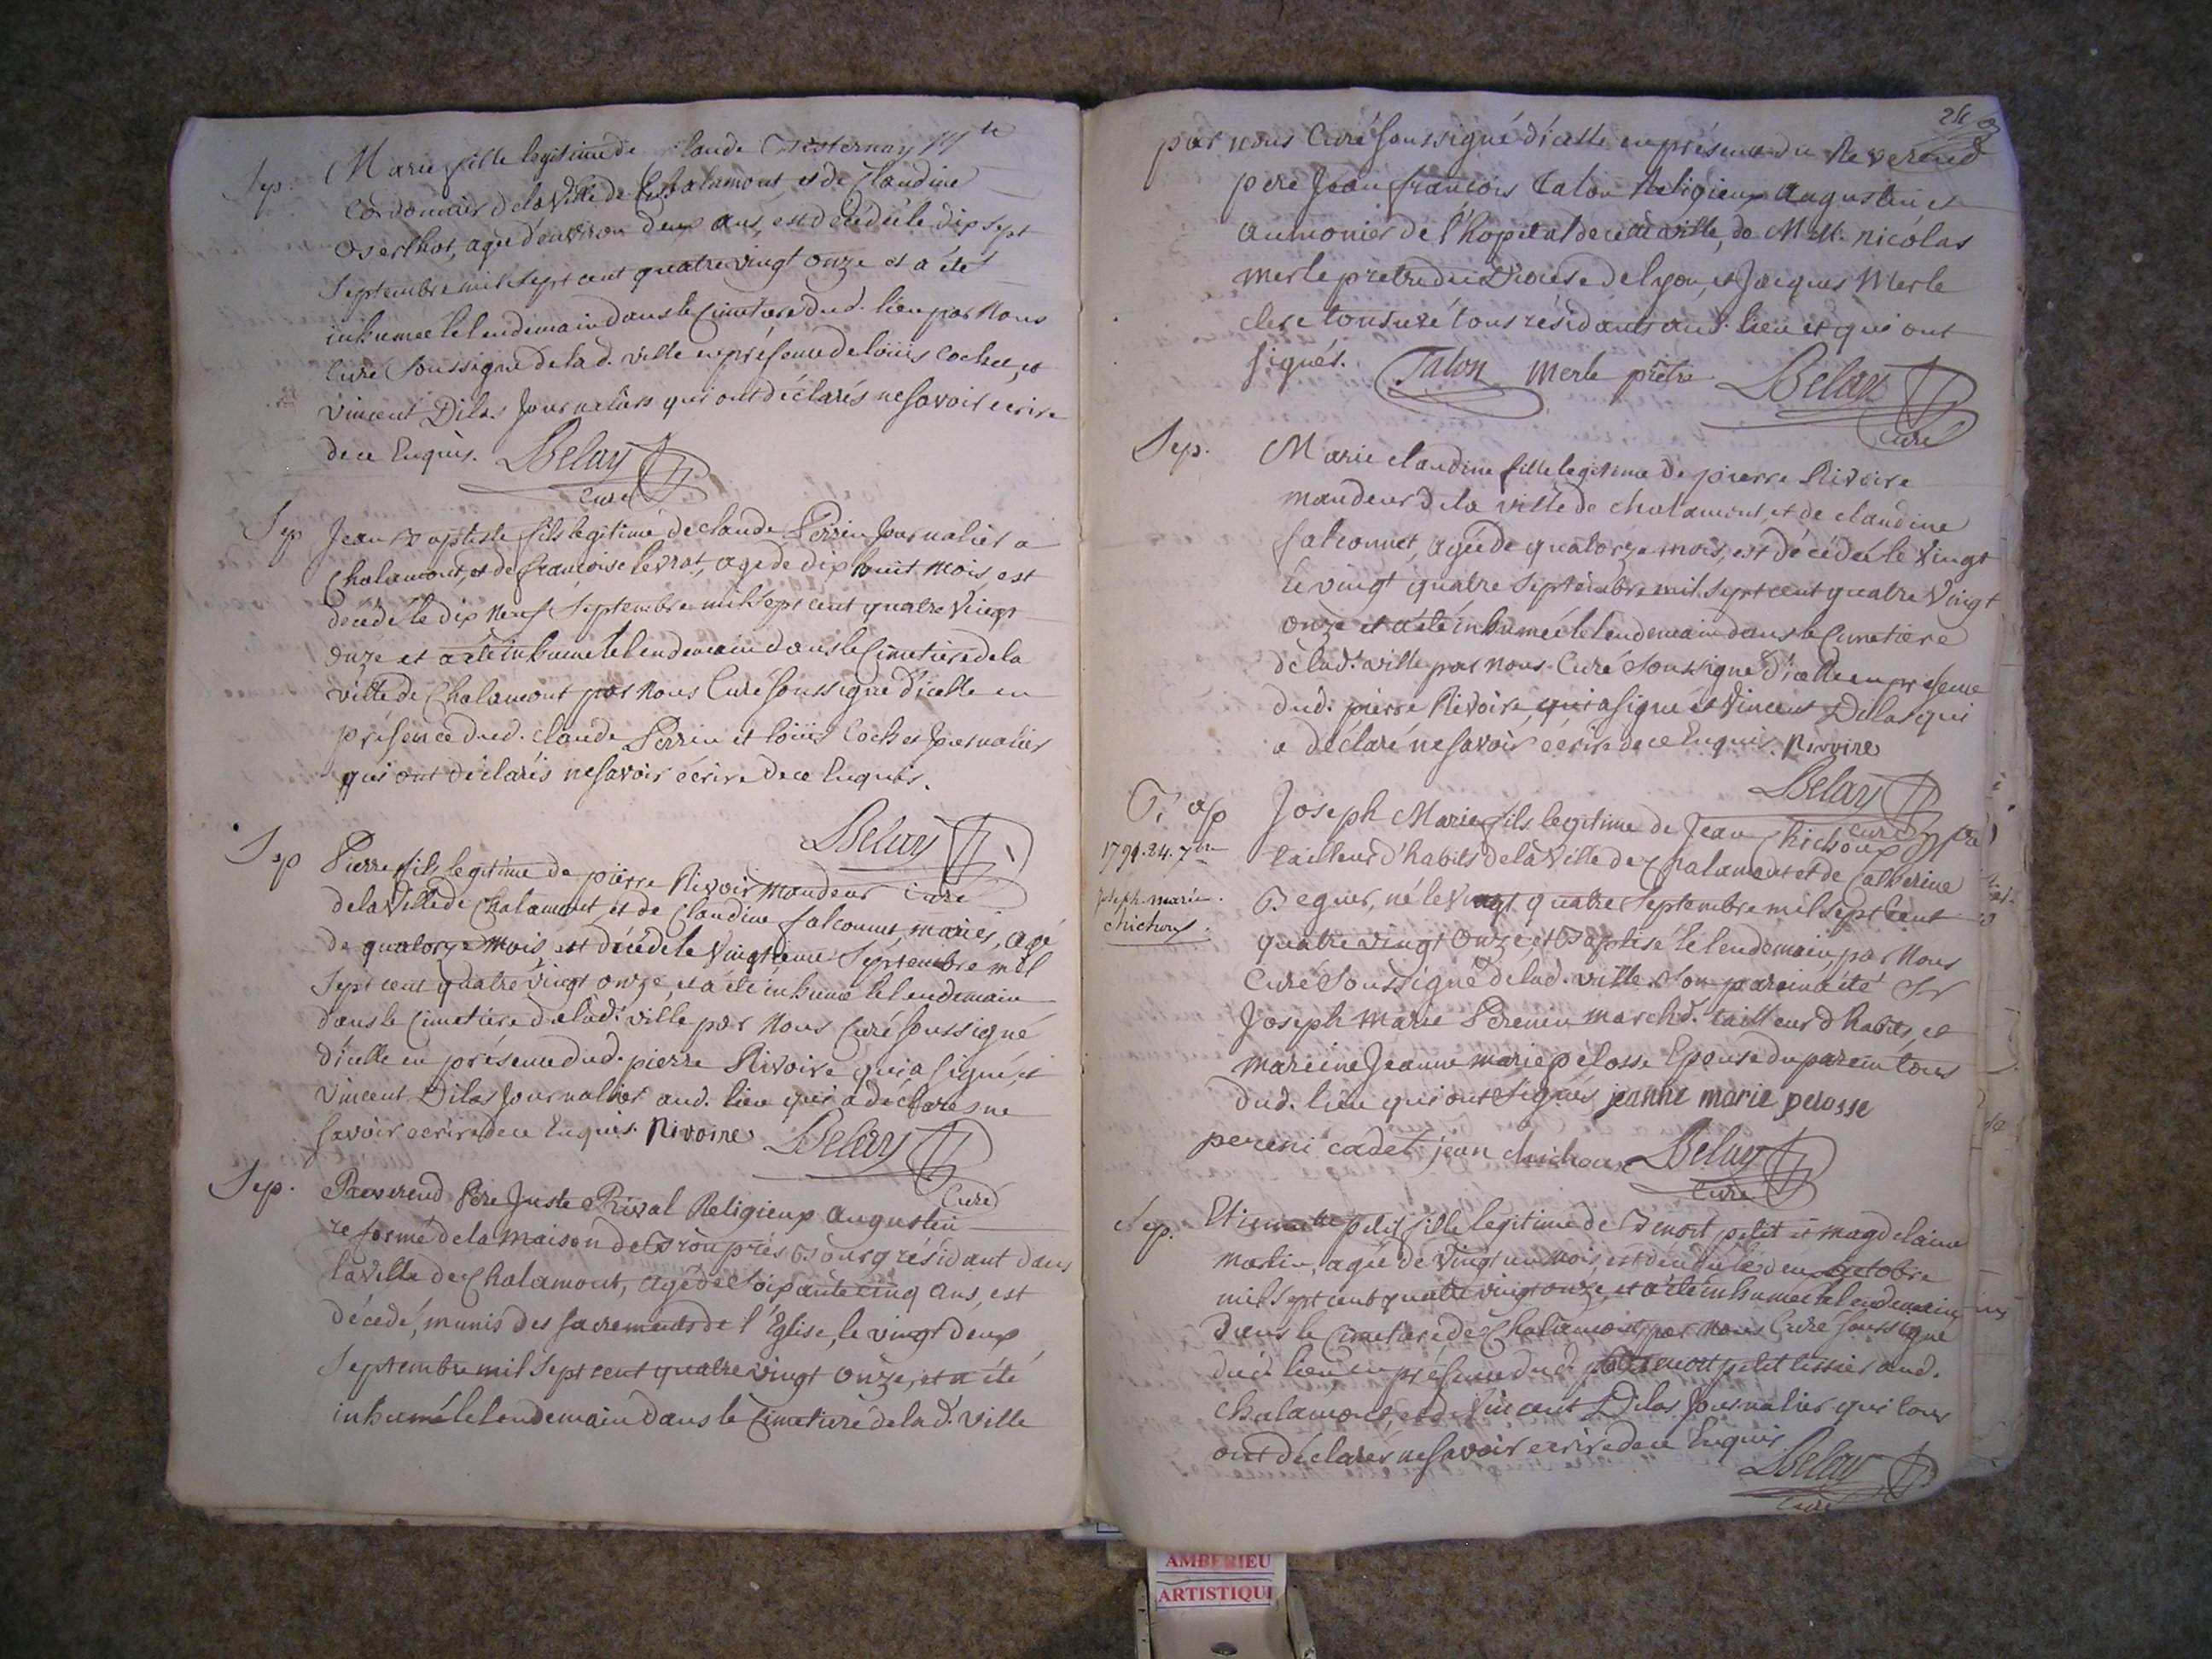 Sep. Marie fille legitime de Claude
Cordonnier de la Ville de Chalamont, et de Claudine
agée d'environ deux ans, est décédée le dix sept
Septembre mil sept cent quatre vingt onze et a été
inhumée le lendemain dans le Cimetiere dud. lieu par Nous
Curé Soussigné de la d. ville en présence de loüis Cochet, et
Vincent Dilas Journaliers qui ont déclarés ne savoir ecrire
de ce Enquis. Belay
Curé
Sep Jean Baptiste fils legitime de Claude Perrin Journalier a
Chalamont, et de francoise levrat, agé de dix huit mois, est
décédé le dix neuf Septembre mil sept cent quatre Vingt
onze et a été inhumé le lendemain dans le Cimetiere de la
ville de Chalamont par Nous Curé Soussigné d'icelle en
présence dud. claude Perrin et loüis Cochet Journalier
qui ont déclarés ne savoir écrire de ce Enquis.
Belay
Curé
Sep Pierre fils legitime de pierre Rivoir mandeur
de la Ville de Chalamont, et de Claudine falconnet, mariés, agé
de quatorze mois, est décédé le Vingtieme Septembre mil
Sept cent quatre vingt onze, et a été inhumé le lendemain
dans le Cimetiere de la d. ville par Nous Curé Soussigné
d'icelle en présence dud. pierre Rivoire qui a signé, et
Vincent Dilas Journalier aud. lieu qui a déclaré ne
savoir ecrire de ce Enquis. Rivoire Belay
Curé
Sep. Reverend Pere Juste Rival Religieux Augustin
reformé de la maison de Brou près Bourg résidant dans
la Ville de Chalamont, agé de Soixante cinq ans, est
décédé, munis des sacrements de l'Eglise, le vingt deux
Septembre mil sept cent quatre vingt onze, et a été
inhumé le lendemain dans le Cimetiere de la d. ville
par nous Curé Soussigné d'icelle en présence du Reverend
pere Jean françois Talon Religieux Augustin et
aumonier de l'hopital de cette ville, de M. nicolas
merle prêtre du Diocése de lyon, et Jacques Merle
clerc tonsuré tous résidants aud. lieu et qui ont
signés. Talon merle prêtre Belay
Curé
Sep. Marie claudine fille legitime de pierre Rivoire
mandeur de la ville de chalamont, et de claudine
falconnet, agée de quatorze mois, est décédée le Vingt
le vingt quatre septembre mil sept cent quatre Vingt
onze et a été inhumée le lendemain dans le Cimetiere
de la d. ville par nous Curé Soussigné d'icelle en présence
dud. pierre Rivoire, qui a signé et Vincent Dilas qui
a déclaré ne savoir écrire de ce Enquis. Rivoire
Belay
Curé
Joseph Marie fils legitime de Jean Chichoux
1791. 24. 7bre
tailleur d'habits de la Ville de Chalamont et de Catherine
joseph marie
Beguer, né le Vingt quatre Septembre mil sept cent
chichoux
quatre vingt onze, et Baptisé le lendemain, par Nous
Curé Soussigné de la d. ville. Son parein a été Sr
Joseph Marie Perenin march. tailleur d'habits, et
mareine Jeanne marie pelosse Epouse du parein tous
dud. lieu qui ont signés jeanne marie pelosse
cadet jean chichoux Belay
Curé
Sep. petit fille legitime de Benoit petit et magdelaine
martin, agée de Vingt un mois, est décédée le deux octobre
mil sept cent quatre vingt onze, et a été inhumée le lendemain
dans le Cimetiere de Chalamont par Nous Curé Soussigné
dud. lieu en présence dud. Benoit petit tissier aud.
chalamont, et de Vincent Dilas Journalier qui tous
ont déclarés ne savoir ecrire de ce Enquis.
Belay
Curé
AMBERIEU
ARTISTIQU